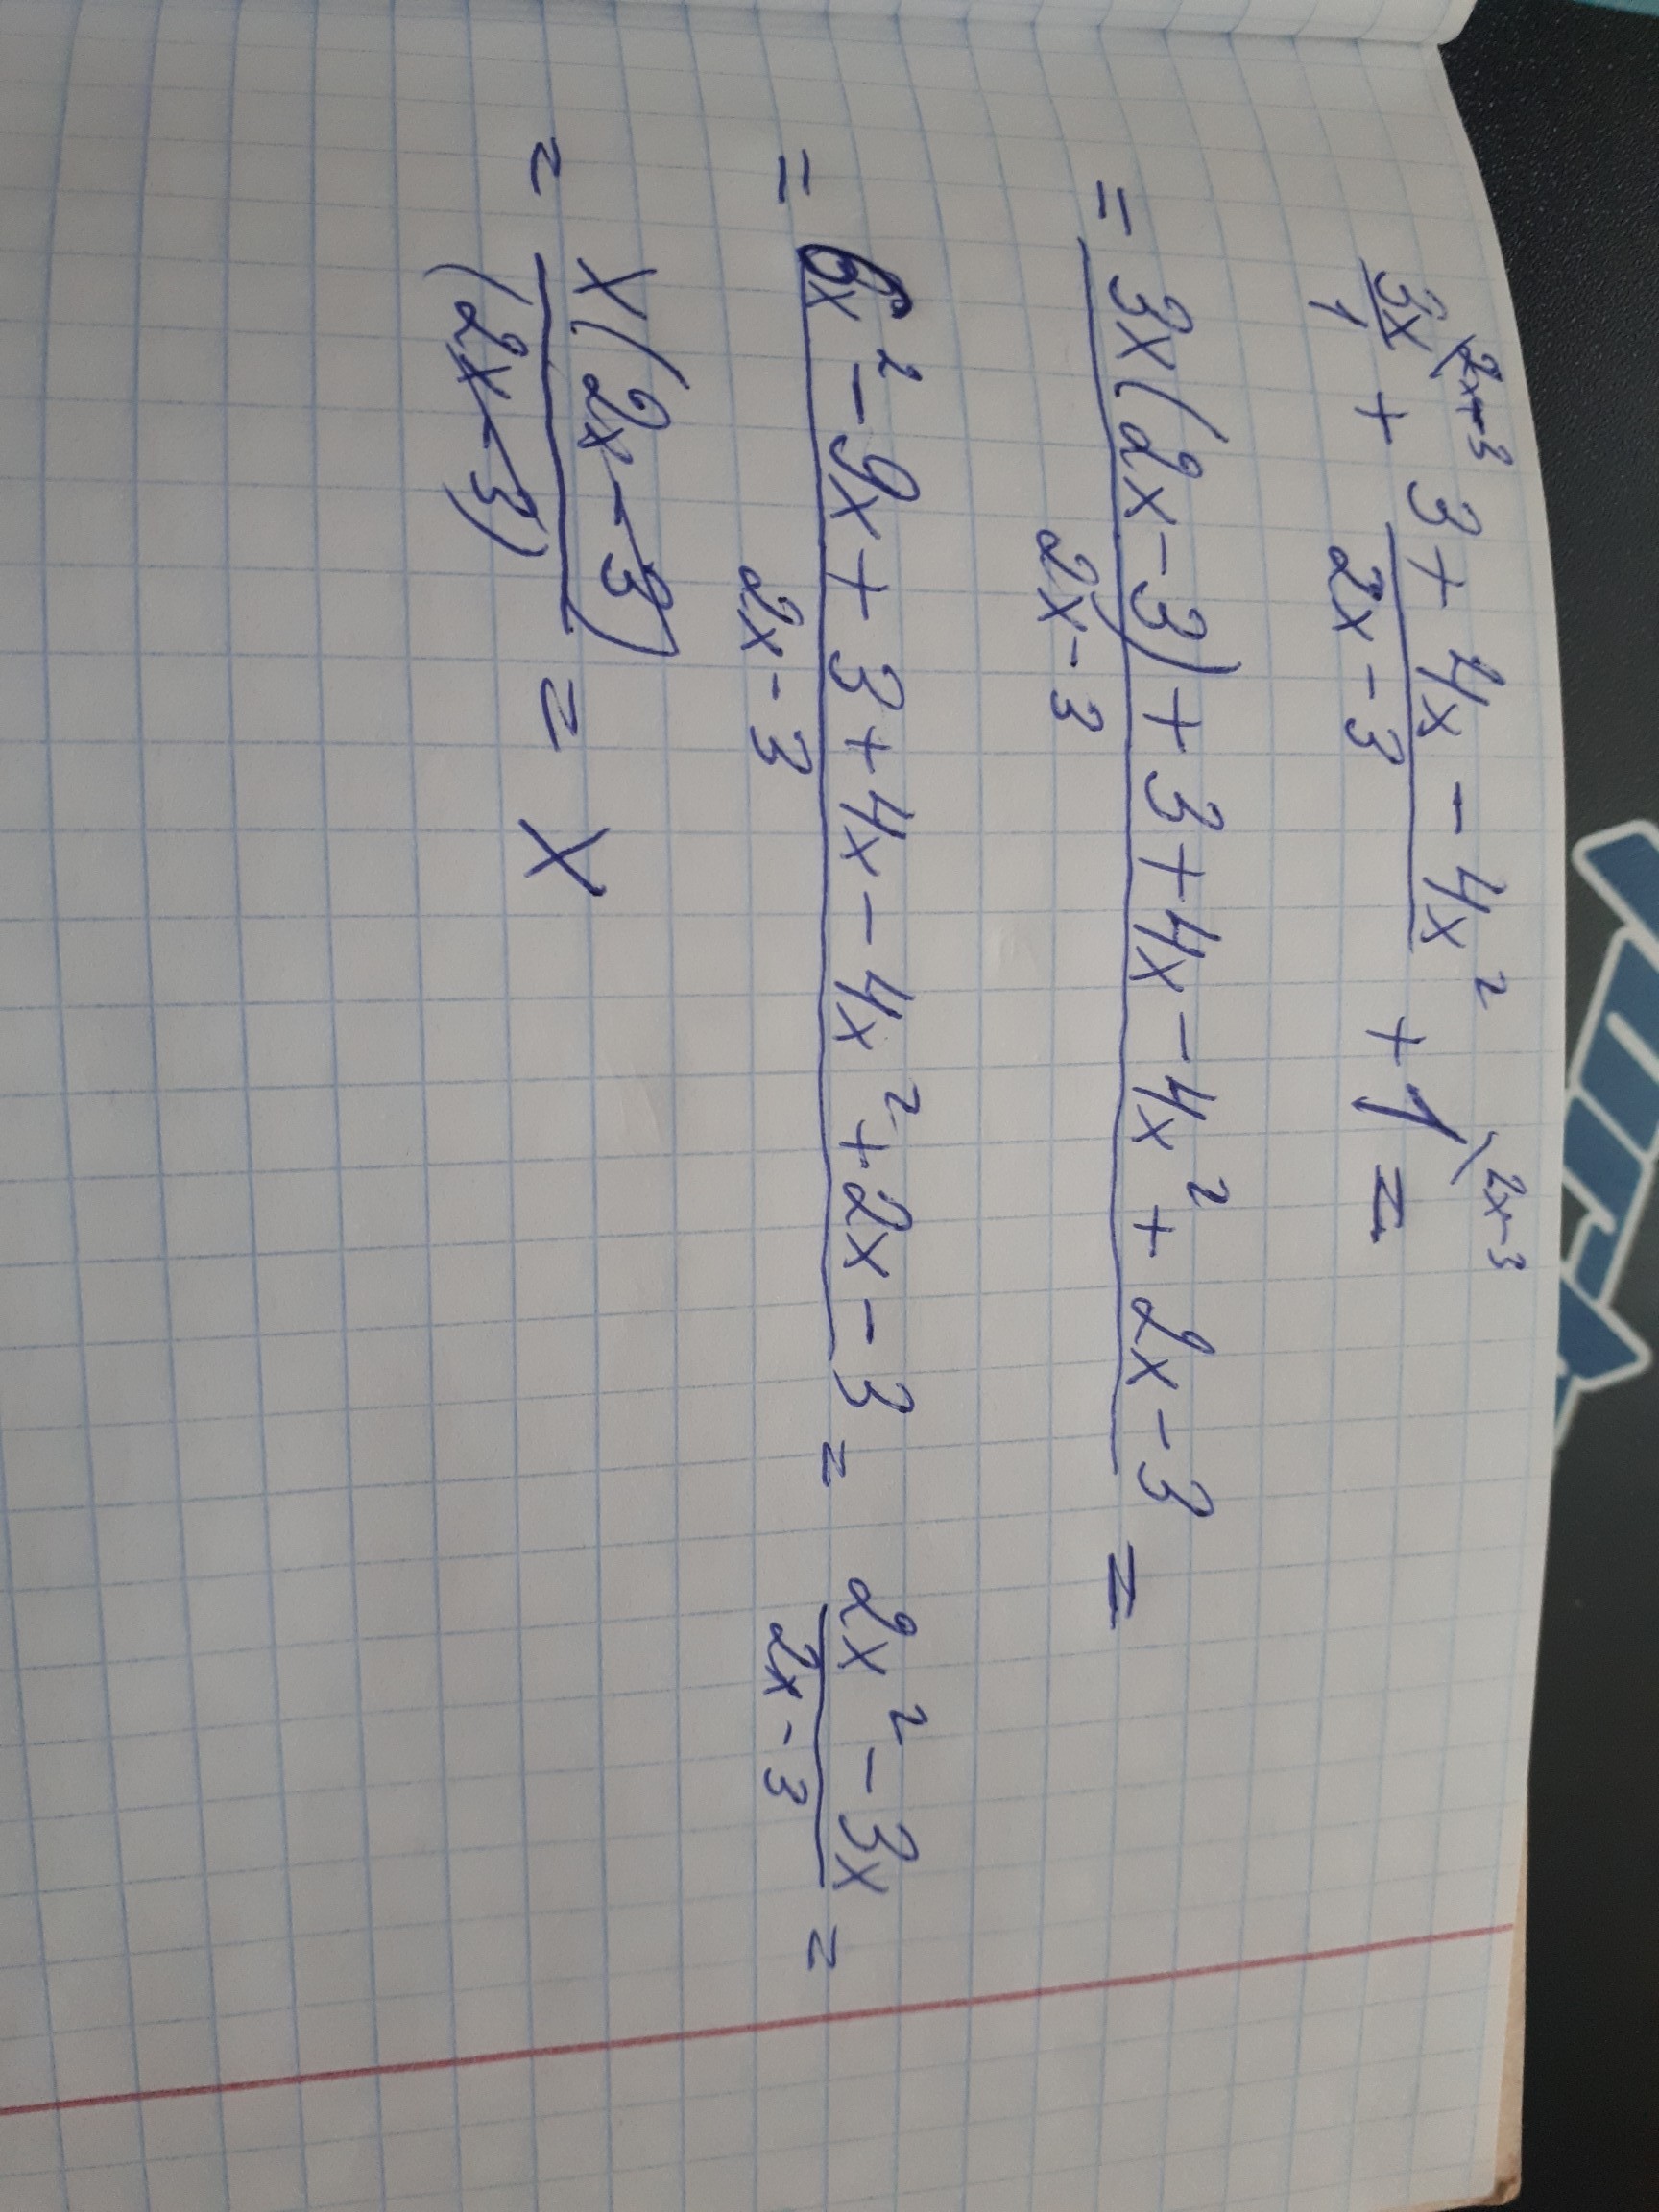 3x/1 \2x-3 + (3+4x-4x²)/(2x-3) + 1 \2x-3 =
= (3x(2x-3)+3+4x-4x²+2x-3)/(2x-3) =
= (6x²-9x+3+4x-4x²+2x-3)/(2x-3) = (2x²-3x)/(2x-3) =
= x(2x-3)/(2x-3) = x